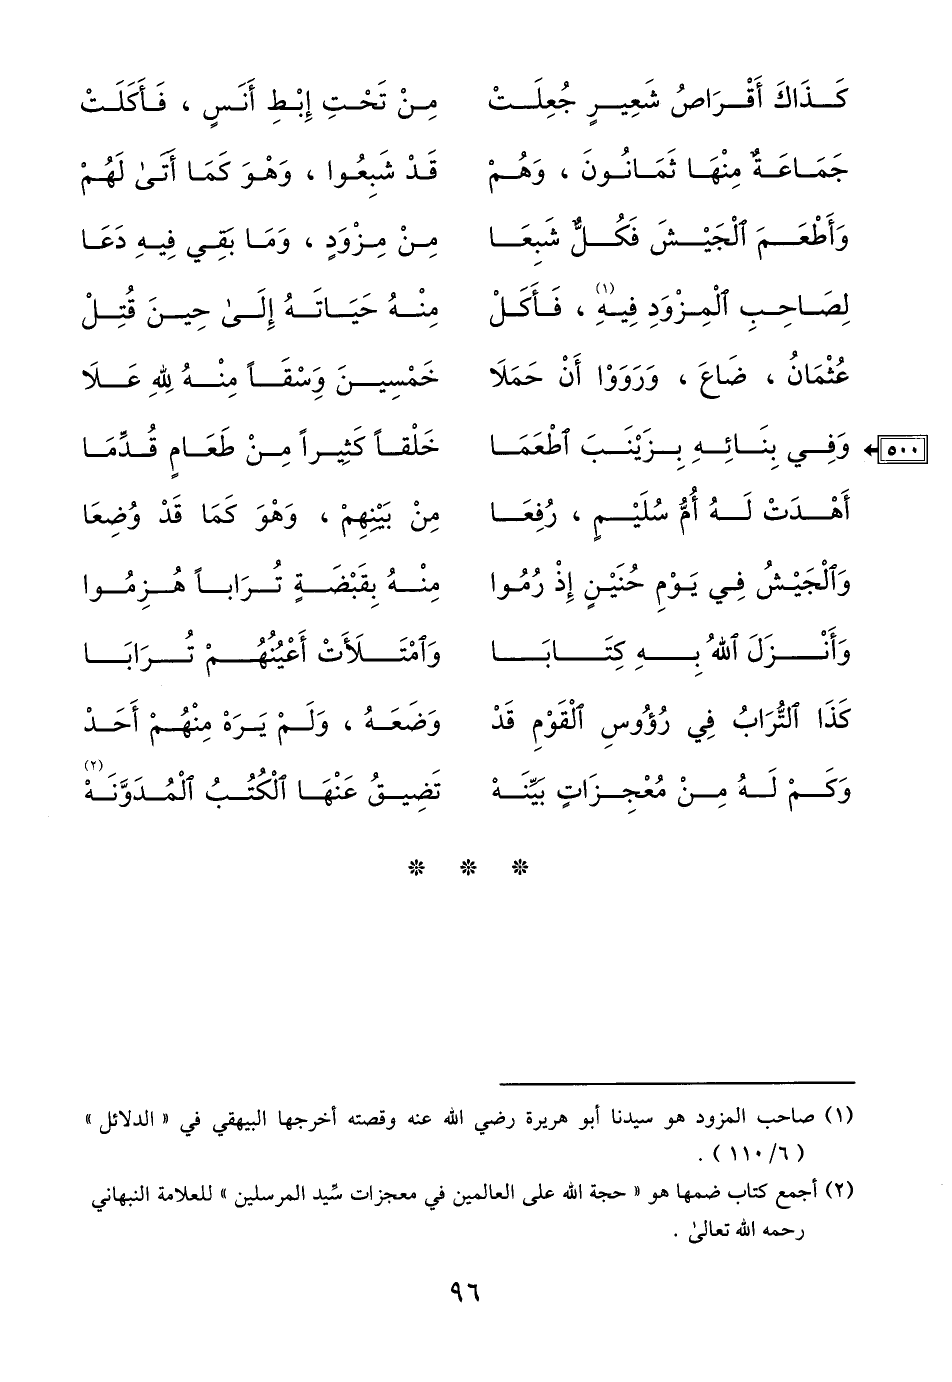 كَذَاكَ أَقْرَاصُ شَعِيرٍ جُعِلَتْ مِنْ تَحْتِ إِبْطِ أَنَسٍ ، فَأَكَلَتْ
جَمَاعَةٌ مِنْهَا ثَمَانُونَ ، وَهُمْ قَدْ شَبِعُوا ، وَهْوَ كَمَا أَتَىٰ لَهُمْ
وَأَطْعَمَ ٱلْجَيْشَ فَكُلٌّ شَبِعَا مِنْ مِزْوَدٍ ، وَمَا بَقِي فِيهِ دَعَا
لِصَاحِبِ ٱلْمِزْوَدِ فِيهِ(١) ، فَأَكَلْ مِنْهُ حَيَاتَهُ إِلَىٰ حِينَ قُتِلْ
عُثْمَانُ ، ضَاعَ ، وَرَوَوْا أَنْ حَمَلَا خَمْسِينَ وَسْقَاً مِنْهُ لِلهِ عَلَا
٥٠٠ وَفِي بِنَائِهِ بِزَيْنَبَ ٱطْعَمَا خَلْقاً كَثِيراً مِنْ طَعَامٍ قُدِّمَا
أَهْدَتْ لَهُ أُمُّ سُلَيْمٍ ، رُفِعَا مِنْ بَيْنِهِمْ ، وَهْوَ كَمَا قَدْ وُضِعَا
وَٱلْجَيْشُ فِي يَوْمِ حُنَيْنٍ إِذْ رُمُوا مِنْهُ بِقَبْضَةٍ تُرَاباً هُزِمُوا
وَأَنْزَلَ ٱللهُ بِهِ كِتَابَا وَٱمْتَلَأَتْ أَعْيُنُهُمْ تُرَابَا
كَذَا ٱلتُّرَابُ فِي رُؤُوسِ ٱلْقَوْمِ قَدْ وَضَعَهُ ، وَلَمْ يَرَهْ مِنْهُمْ أَحَدْ
وَكَمْ لَهُ مِنْ مُعْجِزَاتٍ بَيِّنَهْ تَضِيقُ عَنْهَا ٱلْكُتُبُ ٱلْمُدَوَّنَهْ(٢)
* * *
(١) صاحب المزود هو سيدنا أبو هريرة رضي الله عنه وقصته أخرجها البيهقي في « الدلائل »
( ٦/ ١١٠ ) .
(٢) أجمع كتاب ضمها هو « حجة الله على العالمين في معجزات سِّيد المرسلين » للعلامة النبهاني
رحمه الله تعالىٰ .
٩٦